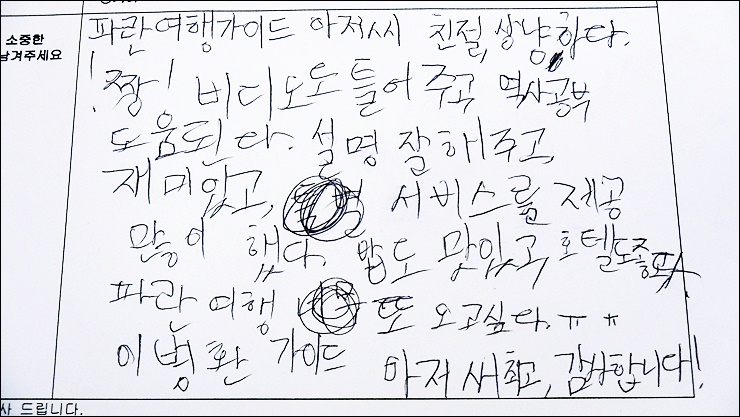 소중한
남겨주세요
파란여행가이드 아저씨 친절, 상냥하다.
! 짱! 비디오도 틀어주고 역사공부
도움된다. 설명 잘해주고,
재미있고, 서비스를 제공
많이 했다. 밥도 맛있고, 호텔도좋고
파란여행 또 오고싶다. ㅠㅠ
이병환 가이드 아저씨최고, 감사합니다!
사 드립니다.